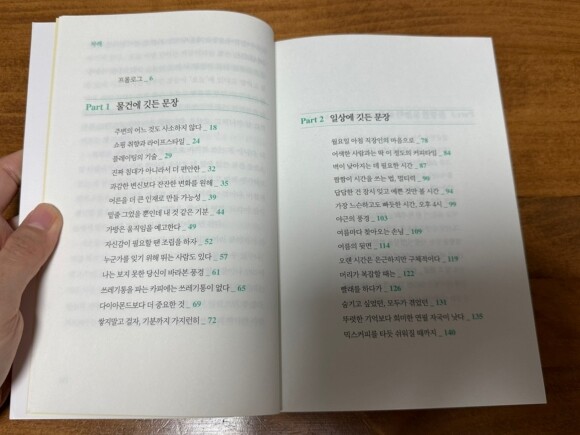 차례
프롤로그 _ 6
Part 1 물건에 깃든 문장
주변의 어느 것도 사소하지 않다 _ 18
쇼핑 취향과 라이프스타일 _ 24
플레이팅의 기술 _ 29
진짜 침대가 아니라서 더 편안한 _ 32
과감한 변신보다 잔잔한 변화를 원해 _ 35
어른을 더 큰 인재로 만들 가능성 _ 39
밑줄 그었을 뿐인데 내 것 같은 기분 _ 44
가방은 움직임을 예고한다 _ 49
자신감이 필요할 땐 조립을 하자 _ 52
누군가를 잊기 위해 뛰는 사람도 있다 _ 57
나는 보지 못한 당신이 바라본 풍경 _ 61
쓰레기통을 파는 카페에는 쓰레기통이 없다 _ 65
다이아몬드보다 더 중요한 것 _ 69
쌓지말고 걸자, 기분까지 가지런히 _ 72
Part 2 일상에 깃든 문장
월요일 아침 직장인의 마음으로 _ 78
어색한 사람과는 딱 이 정도의 커피타임 _ 84
벽이 낮아지는 데 필요한 시간 _ 87
짬짬이 시간을 쓰는 법, 멀티력 _ 90
답답한 건 잠시 잊고 예쁜 것만 볼 시간 _ 94
가장 느슨하고도 빠듯한 시간, 오후 4시 _ 99
야근의 풍경 _ 103
여름마다 찾아오는 손님 _ 109
어둠의 뒷면 _ 114
오랜 시간은 은근하지만 구체적이다 _ 119
머리가 복잡할 때는 _ 122
빨래를 하다가 _ 126
숨기고 싶었던, 모두가 겪었던 _ 131
뚜렷한 기억보다 희미한 연필 자국이 낫다 _ 135
믹스커피를 타듯 쉬워질 때까지 _ 140